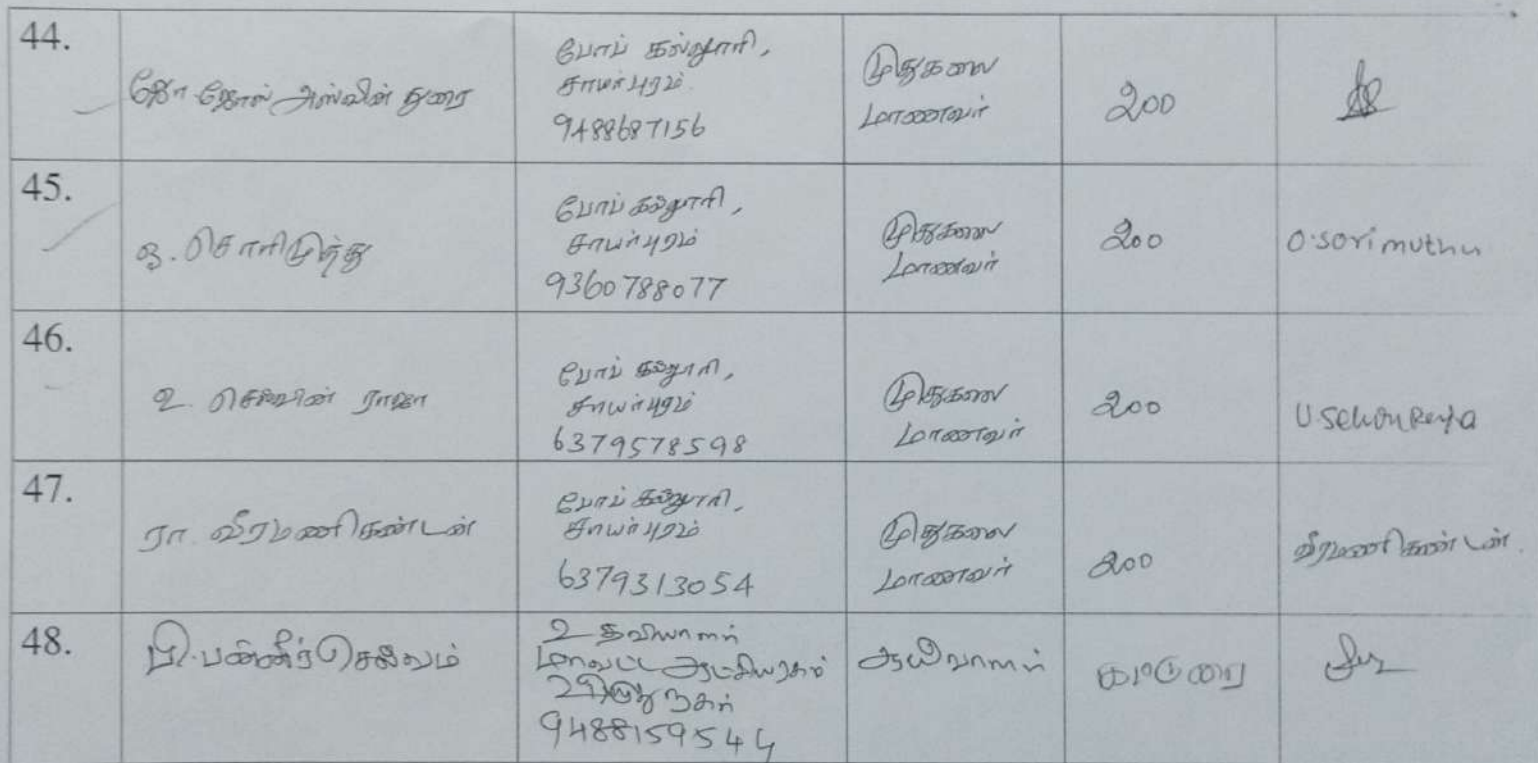 44.
ஜோ ஜோஸ் அஸ்வின் துரை
போப் கல்லூரி,
சாயர்புரம்
9488687156
முதுகலை
மாணவர்
200
45.
ஒ. சொரிமுத்து
போப் கல்லூரி,
சாயர்புரம்
9360788077
முதுகலை
மாணவர்
200
O.sorimuthu
46.
உ. செல்வின் ராஜா
போப் கல்லூரி,
சாயர்புரம்
6379578598
முதுகலை
மாணவர்
200
47.
ரா. வீரமணிகண்டன்
போப் கல்லூரி,
சாயர்புரம்
6379313054
முதுகலை
மாணவர்
200
வீரமணிகண்டன்
48.
பி. பன்னீர்செல்வம்
உதவியாளர்
மாவட்ட ஆட்சியரகம்
விருதுநகர்
9488159544
ஆய்வாளர்
கட்டுரை